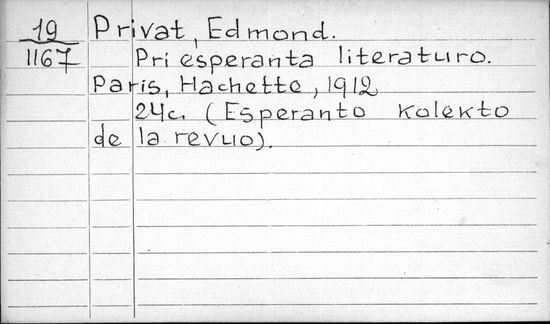 19 Privat, Edmond.
1167 Pri esperanta literaturo.
Paris, Hachette, 1912
24c. (Esperanto Kolekto
de la revuo).